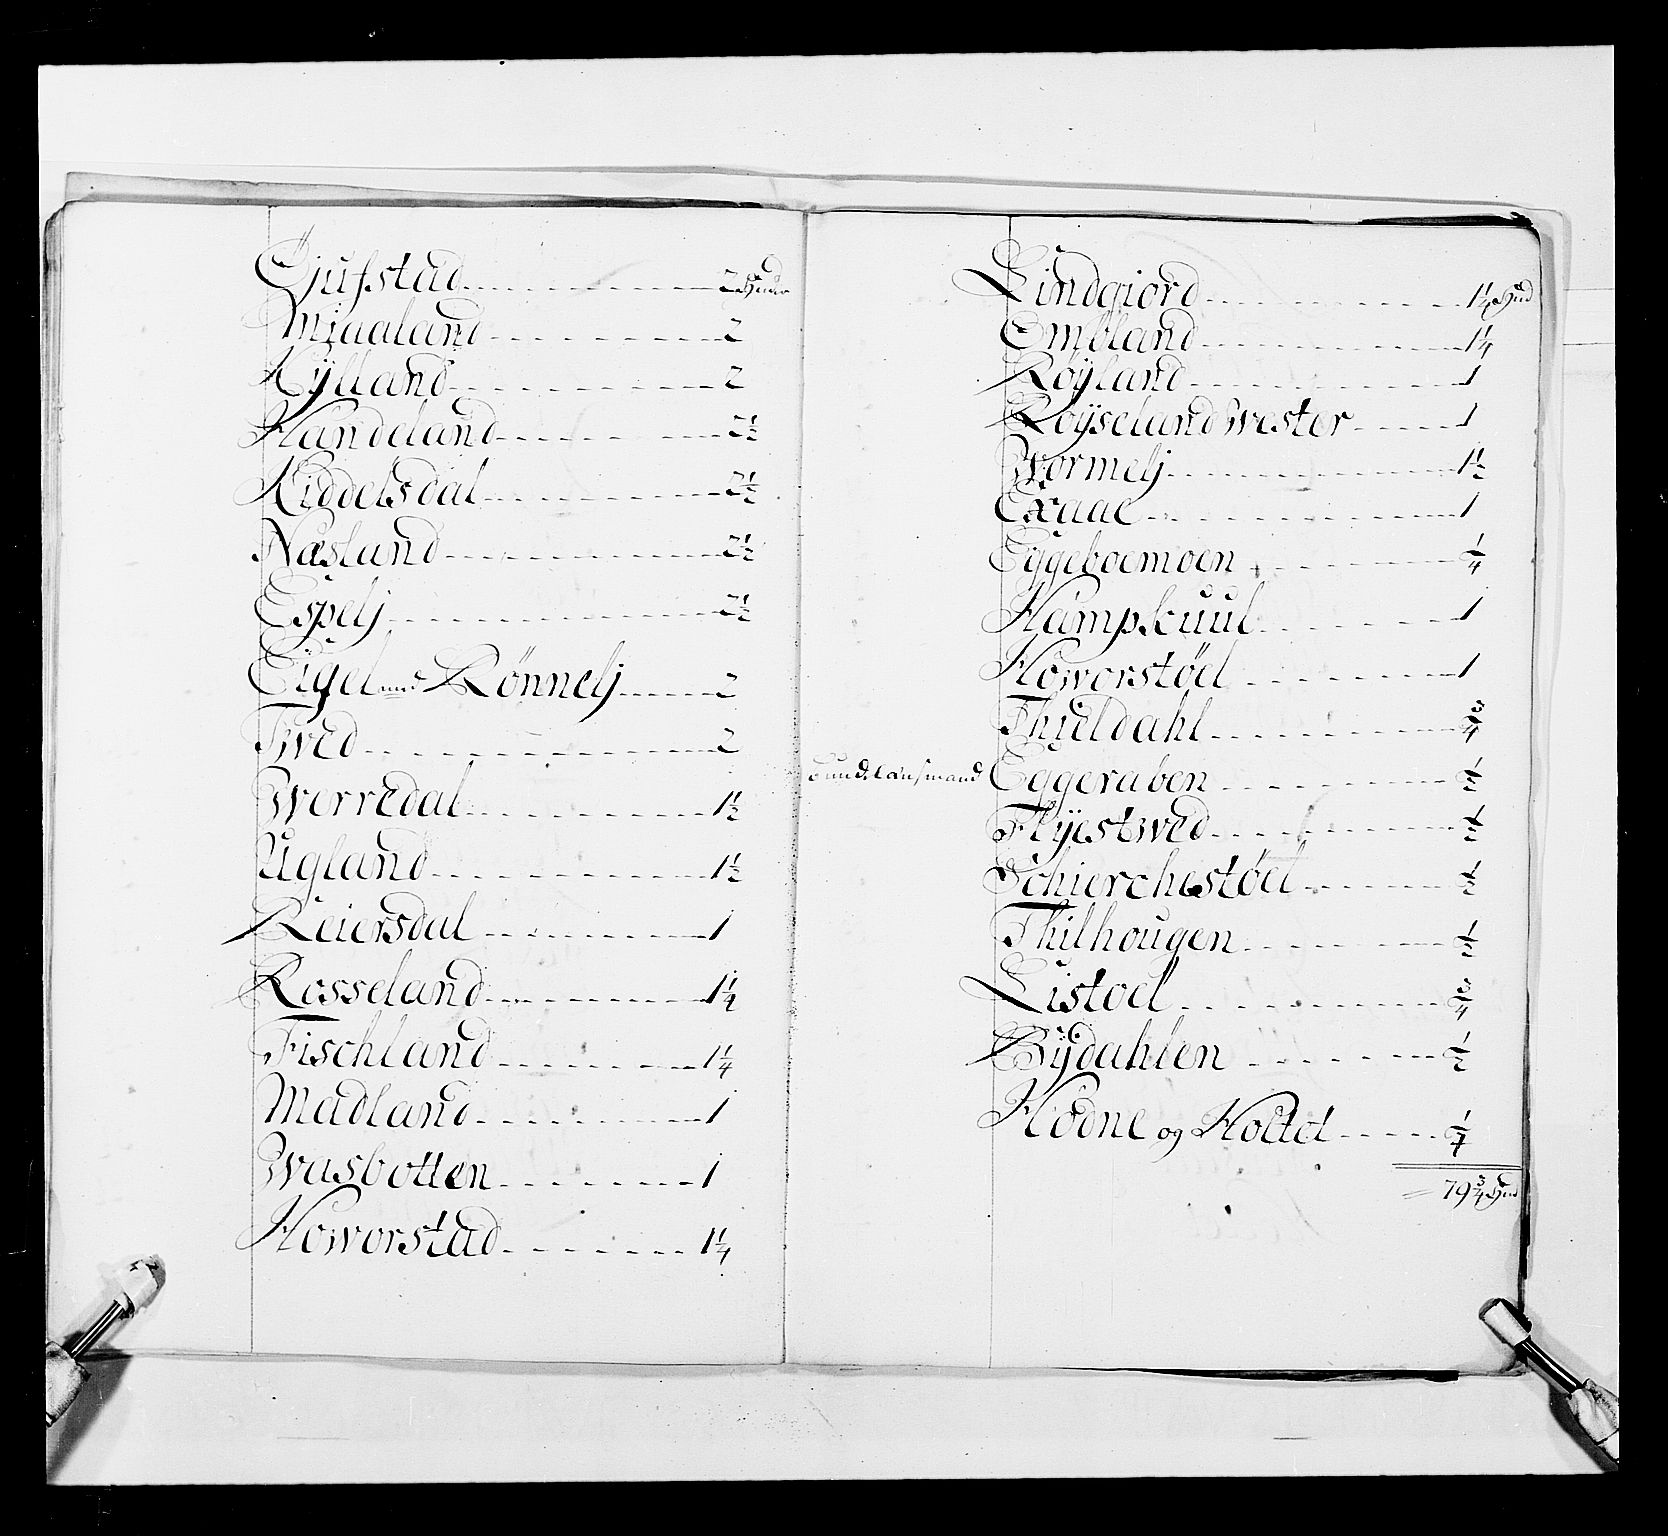 Giufstad 2 Huder
Miaaland 2
Kÿlland 2
Handeland 2½
Kiddelsdal 2½
Næsland 2½
Espelj 2½
Eigel med Rønnelj 2
Tved 2
Werredal 1½
Ugland 1½
Reiersdal 1
Rosseland 1¼
Fischland 1¼
Madland 1
Wasbotten 1
Howorstad 1¼
Lindgiord 1¼ Hud
Ombland 1¼
Røÿland 1
Røÿseland Wester 1
Wormelj 1½
Exaae 1
Eggeboemoen ¼
Hampkuul 1
Howorstøel 1
Thieldahl ¾
Bundelansmand Eggeraben ½
Flÿestwed ½
Schierchestøel ½
Thilhougen ½
Listoel ¾
Bÿdahlen ½
Hodne og Holtet ¼
= 79¾ Hud